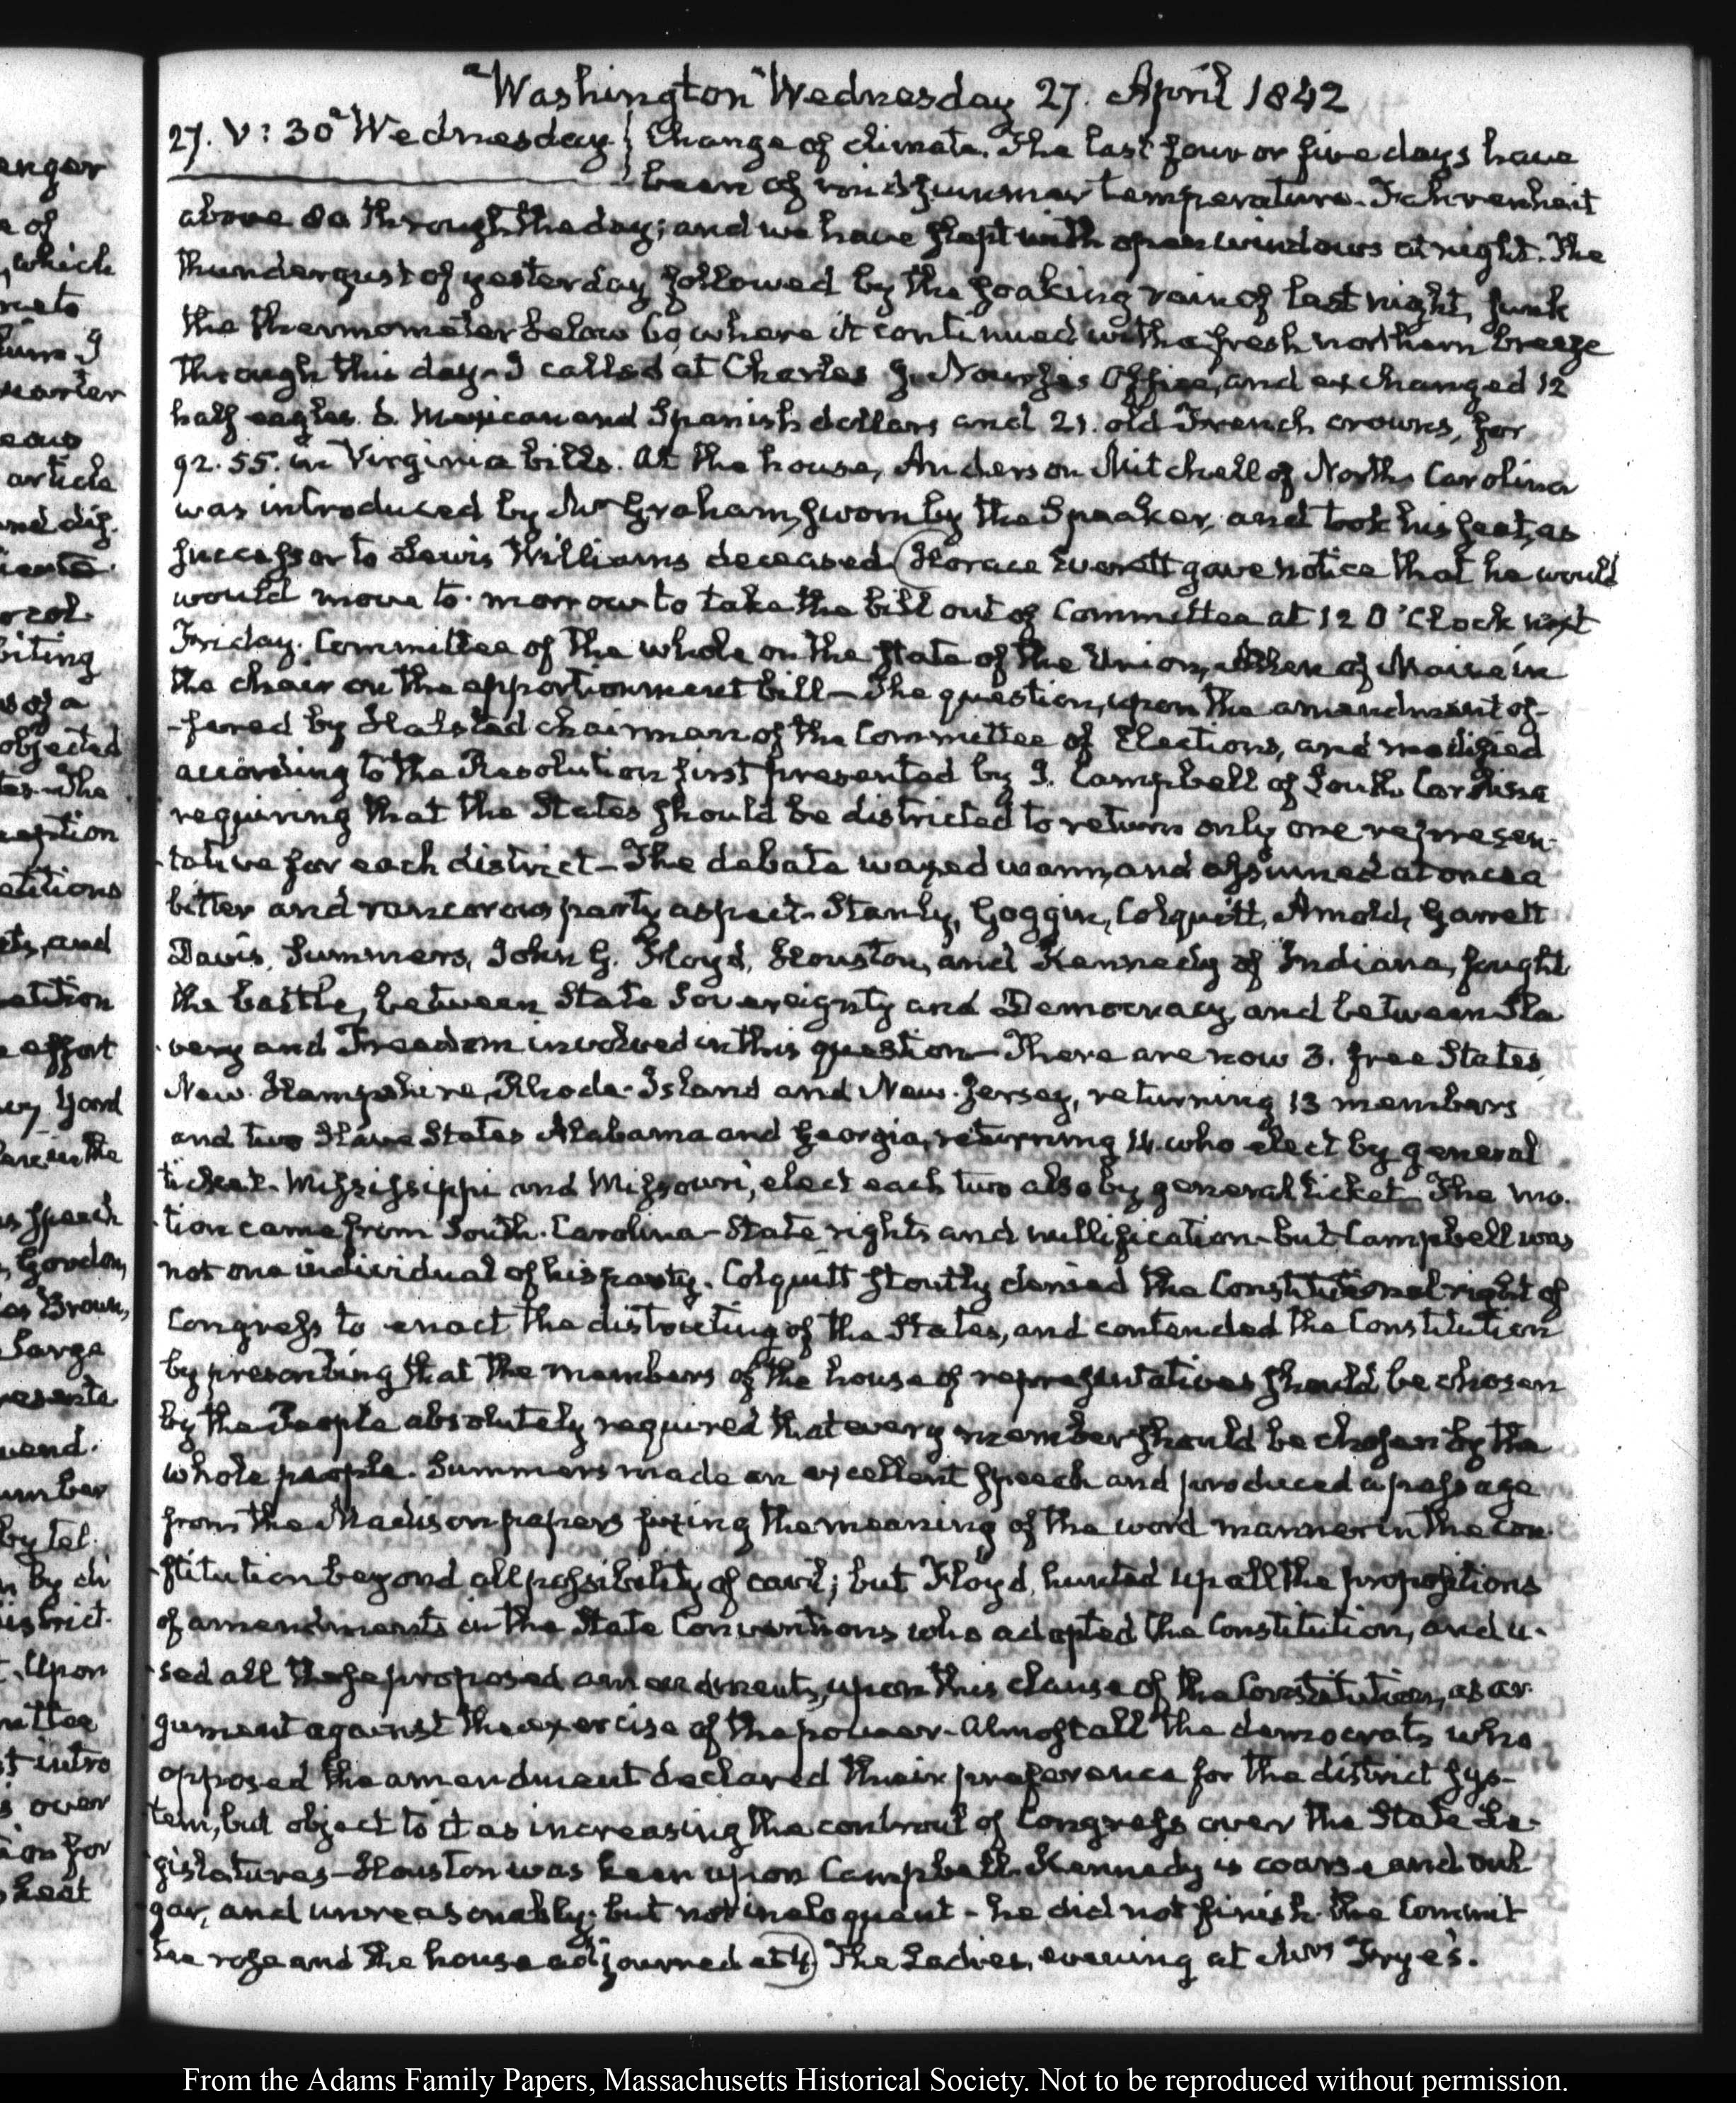 "Washington" Wednesday 27. April 1842
27. V: 30. Wednesday. } Change of climate. The last four or five days have
been of midsummer temperature. Fahrenheit
above 80 through the day; and we have slept with open windows at night. The
thundergust of yesterday followed by the soaking rain of last night, sunk
the thermometer below 60 where it continued with a fresh northern breeze
through this day. I called at Charles J. Nourse's Office, and exchanged 12
half eagles. 6. Mexican and Spanish dollars and 21. old French crowns, for
92.55. in Virginia bills. At the house, Anderson Mitchell of North Carolina
was introduced by Mr Graham, sworn by the Speaker, and took his seat, as
successor to Lewis Williams deceased. (Horace Everett gave notice that he would
would move to-morrow to take the bill out of Committee at 12 O'Clock next
Friday. Committee of the whole on the state of the Union, Allen of Maine in
the chair on the apportionment bill—The question, upon the amendment of-
-fered by Halsted chairman of the Committee of Elections, and modified
according to the Resolution first presented by J. Campbell of South Carolina
requiring that the States should be districted to return only one represen-
-tative for each district—The debate waxed warm, and assumed at once a
bitter and rancorous party aspect. Stanly, Goggin, Colquitt, Arnold, Garrett
Davis, Summers, John G. Floyd, Houston, and Kennedy of Indiana, fought
the battle, between State Sovereignty and Democracy, and between Sla
-very and Freedom involved in this question—There are now 3. free States,
New-Hampshire, Rhode-Island and New-Jersey, returning 13 members
and two Slave States Alabama and Georgia, returning 14. who elect by general
ticket. Mississippi and Missouri, elect each two also by general ticket. The mo-
-tion came from South-Carolina—State rights and nullification—but Campbell was
not one individual of his party. Colquitt stoutly denied the Constitutional right of
Congress to enact the districting of the States, and contended the Constitution
by prescribing that the members of the house of representatives should be chosen
by the People absolutely required that every member should be chosen by the
whole people. Summers made an excellent speech and produced a passage
from the Madison papers fixing the meaning of the word manner in the Con-
-stitution beyond all possibility of cavil; but Floyd, hunted up all the propositions
of amendments in the State Conventions who adopted the Constitution, and u-
-sed all these proposed amendments, upon this clause of the Constitution, as ar-
gument against the exercise of the power. Almost all the democrats who
opposed the amendment declared their preference for the district sys-
tem, but object to it as increasing the controul of Congress over the State Le-
gislatures—Houston was keen upon Campbell. Kennedy is coarse and vul
gar, and unreasonably; but not ineloquent—he did not finish. the Commit
tee rose and the house adjourned at 4.) The Ladies, evening at Mrs Frye's.
From the Adams Family Papers, Massachusetts Historical Society. Not to be reproduced without permission.